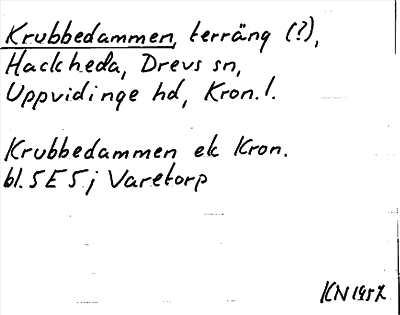 Krubbedammen, terräng (?),
Hackheda, Drevs sn,
Uppvidinge hd, Kron. l.
Krubbedammen ek Kron.
bl. 5 E 5 j Varetorp
KN 1957